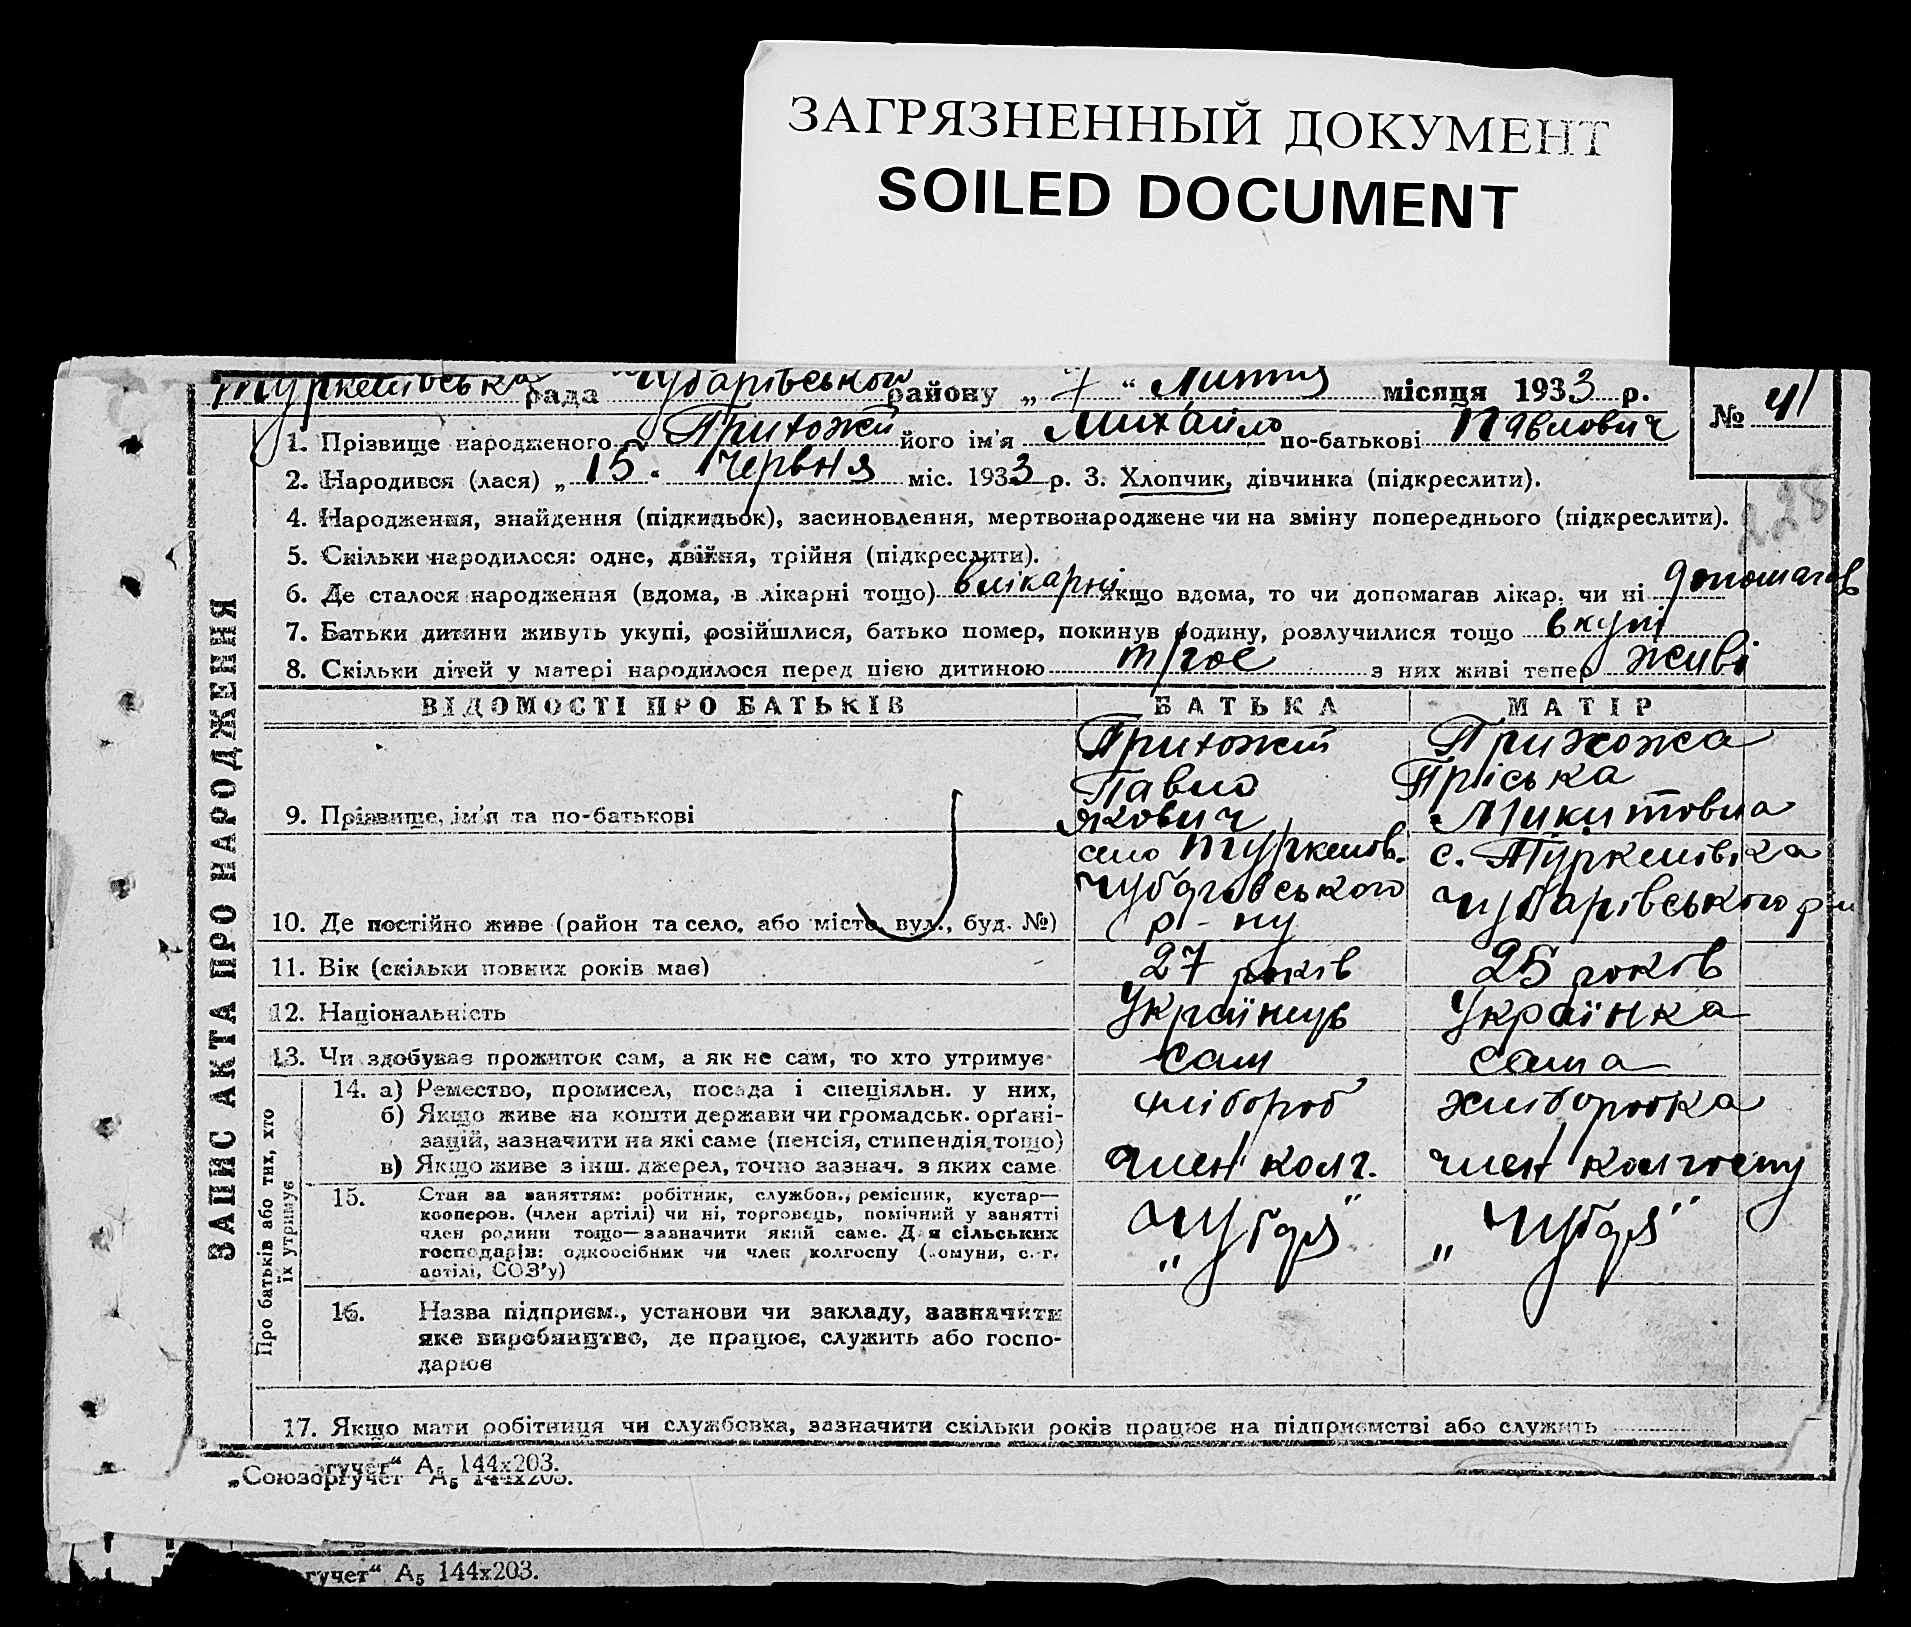 ЗАГРЯЗНЕННЫЙ ДОКУМЕНТ
SOILED DOCUMENT
Туркенівська рада Чубарівського району „ 7 “ Липня місяця 1933 р.
№ 41
1. Прізвище народженого Прихожій його ім'я Михайло по-батькові Павлович
2. Народився (лася) „ 15 “ Червня міс. 1933 р. 3. Хлопчик, дівчинка (підкреслити).
228
4. Народження, знайдення (підкидьок), засиновлення, мертвонароджене чи на зміну попереднього (підкреслити).
5. Скільки народилося: одне, двійня, трійня (підкреслити).
6. Де сталося народження (вдома, в лікарні тощо) в лікарні якщо вдома, то чи допомагав лікар, чи ні допомагав
7. Батьки дитини живуть укупі, розійшлися, батько помер, покинув родину, розлучилися тощо вкупі
8. Скільки дітей у матері народилося перед цією дитиною троє з них живі тепер живі
ЗАПИС АКТА ПРО НАРОДЖЕННЯ
ВІДОМОСТІ ПРО БАТЬКІВ БАТЬКА МАТІР
Прихожій Прихожа
Павло Пріська
9. Прізвище, ім'я та по-батькові Якович Микитовна
село Туркенов. с. Туркенівка
Чубарівського Чубарівського р-ну
10. Де постійно живе (район та село, або місто, вул., буд. №) р-ну
11. Вік (скільки повних років має) 27 років 25 років
12. Національність Українець Українка
13. Чи здобуває прожиток сам, а як не сам, то хто утримує сам сама
Про батьків або тих, хто
їх утримує
14. а) Ремество, промисел, посада і спеціяльн. у них, хлібороб хліборобка
б) Якщо живе на кошти держави чи громадськ. орґані-
зацій, зазначити на які саме (пенсія, стипендія, тощо)
в) Якщо живе з інш. джерел, точно зазнач. з яких саме член колг. член колгоспу
15. Стан за заняттям: робітник, службов., ремісник, кустар—
кооперов. (член артілі) чи ні, торговець, помічний у занятті
член родини тощо—зазначити який саме. Для сільських
господарів: одноосібник чи член колгоспу (комуни, с.-г.
артілі, СОЗ'у)
„Чубаря“ „Чубаря“
16. Назва підприєм., установи чи закладу, зазначити
яке виробництво, де працює, служить або госпо-
дарює
17. Якщо мати робітниця чи службовка, зазначити скільки років працює на підприємстві або служить
оргучет“ А5 144х203.
„Союзоргучет“ А5 144х203.
гучет“ А5 144х203.